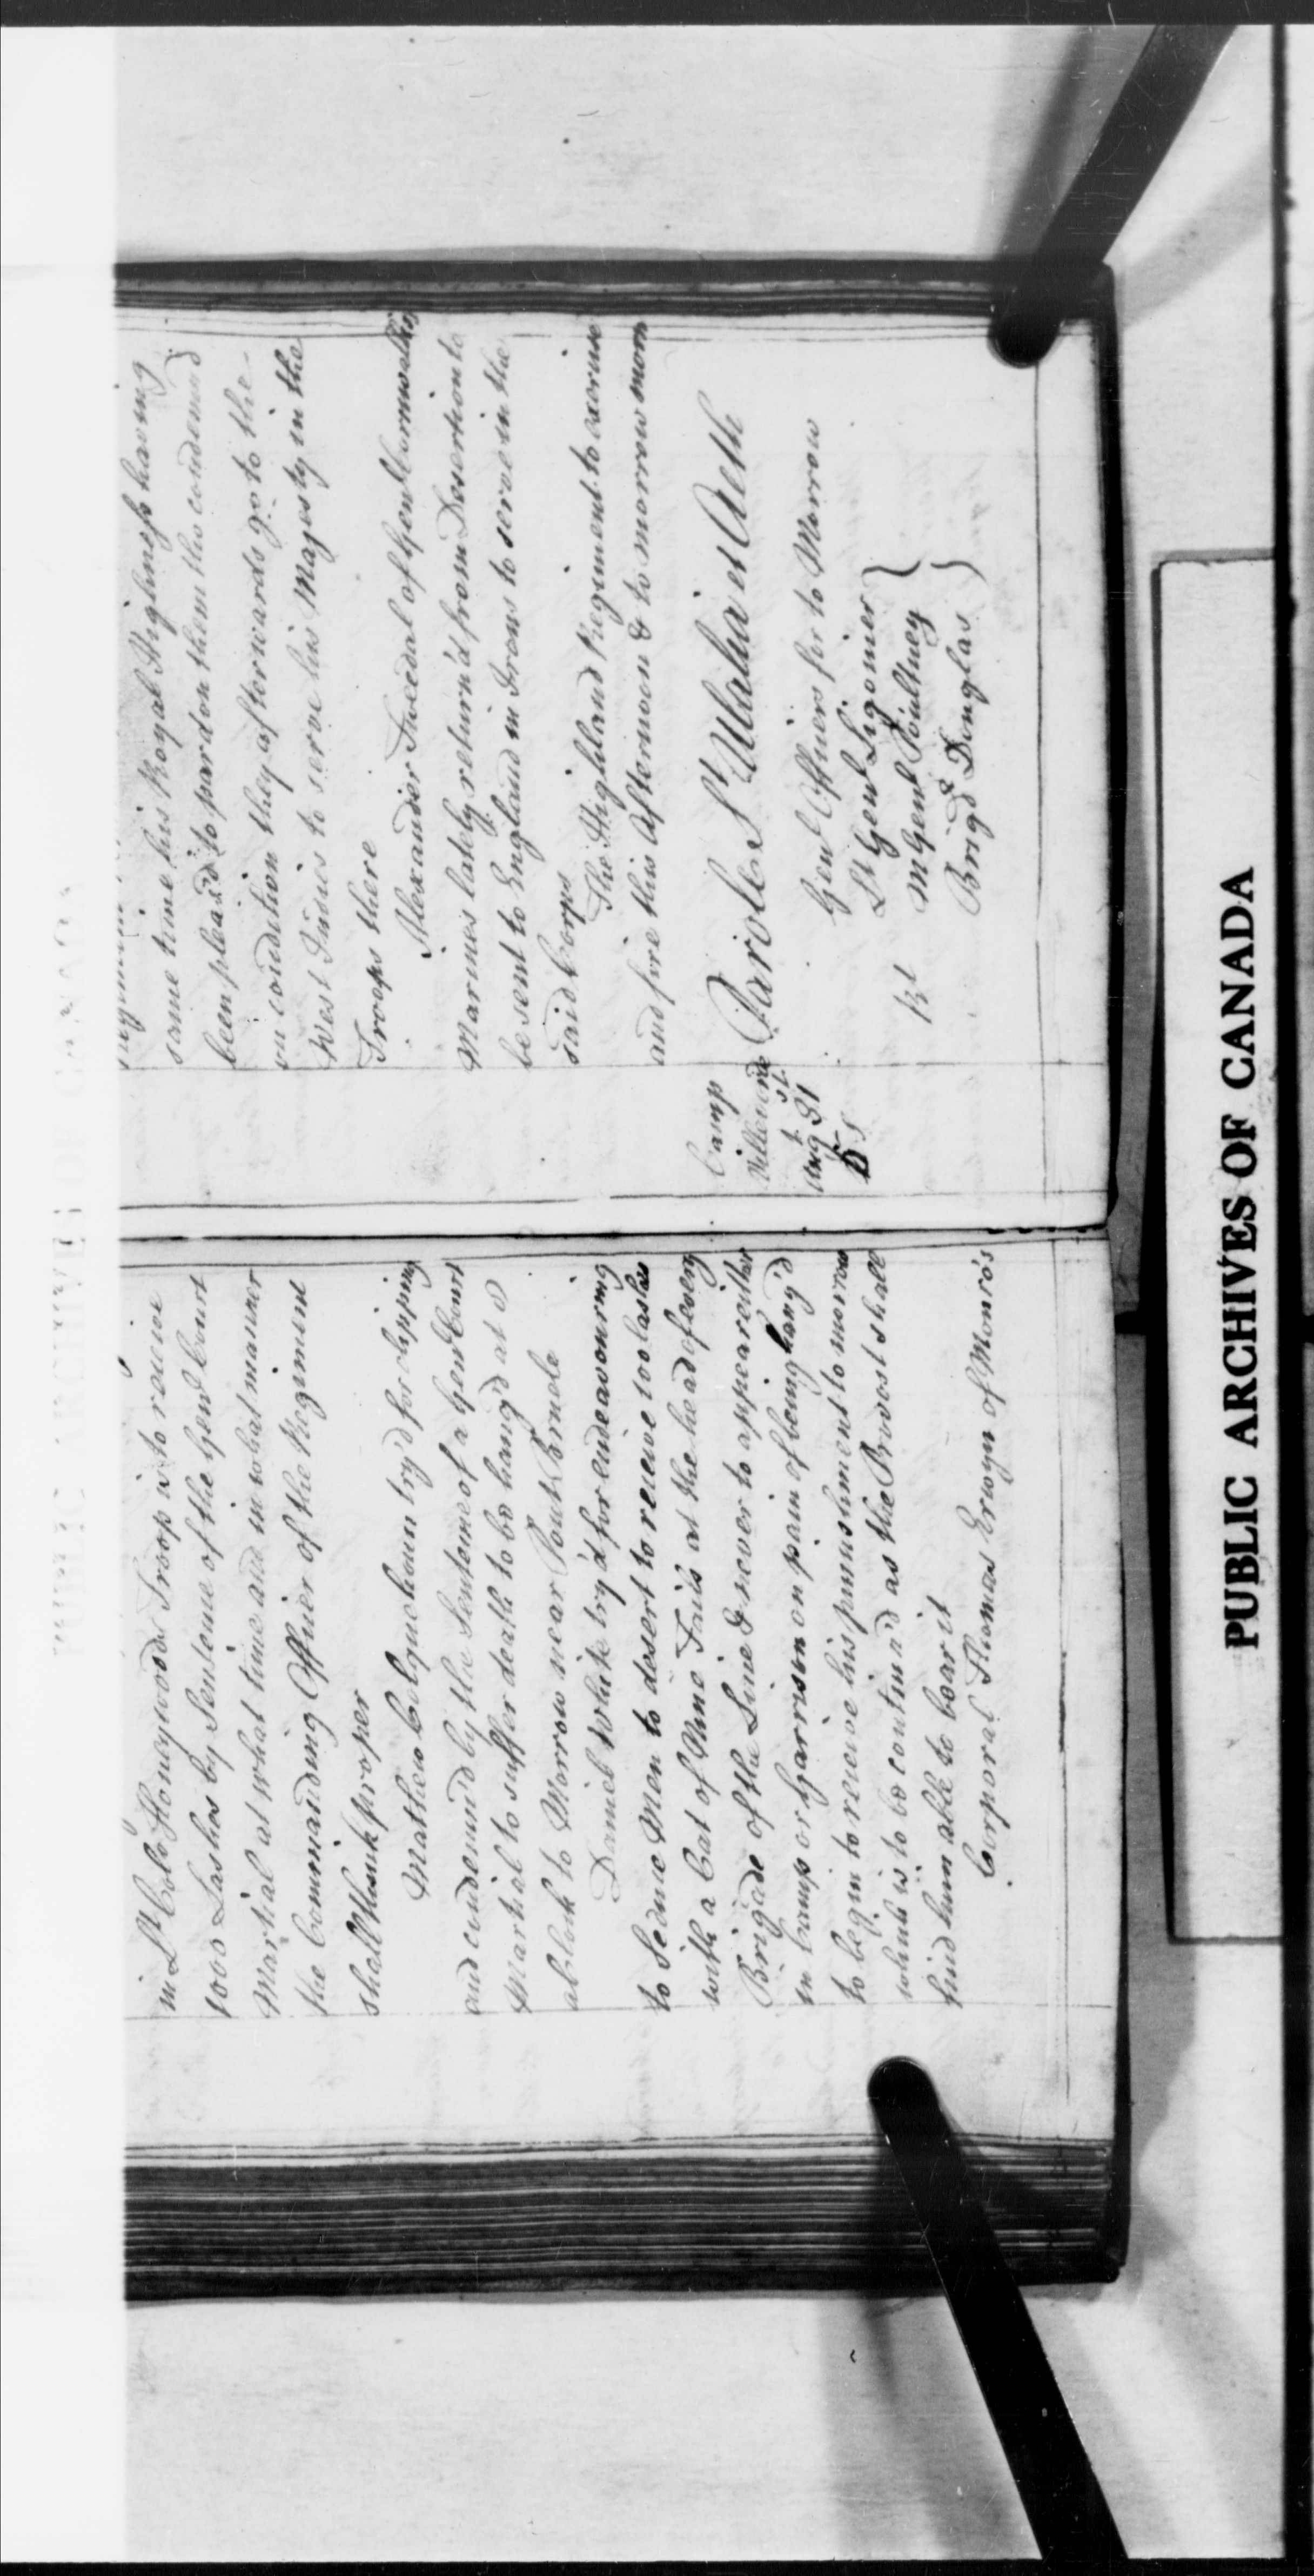 in Lt Colo Honeywoods Troop is to receive
1000 Lashes by Sentence of the Genl Court
Martial at what time and in what manner
the Commanding Officer of the Regiment
shall think proper
Mathew Colquehoun try'd for clipping
and condemn'd by the Sentence of a Genl Court
Martial to suffer death to be hang'd at 8
a block to Morrow near Pont Brule
Daniel White try'd for endeavouring
to Seduce Men to desert to receive 100 lashes
with a Cat of Nine Tails at the head of every
Brigade of the Line & never to appear either
in Camp or Garrison on pain of being hang'd
to begin to receive his punishment to morrow
which is to be continu'd as the Provost shall
find him able to bear it
Corporal Thomas Erwyn of Monro's
same time his Royal Highness having
been pleas'd to pardon them tho condemned
on condition they afterwards go to the
West Indies to serve his Majesty in the
Troops there
Alexander Tweedal of Genl Cornwallis's
Marines lately return'd from Desertion to
be sent to England in Irons to serve in the
said Corps
The Highland Regiment to exercise
and fire this Afternoon & to morrow morn
Camp
Villevorde
Augt 31st
Parole St
et Aeth
Genl Officers for to Morrow
Lt Genl Ligonier
M Genl Poultney
Brigdr Douglas
PUBLIC ARCHIVES OF CANADA